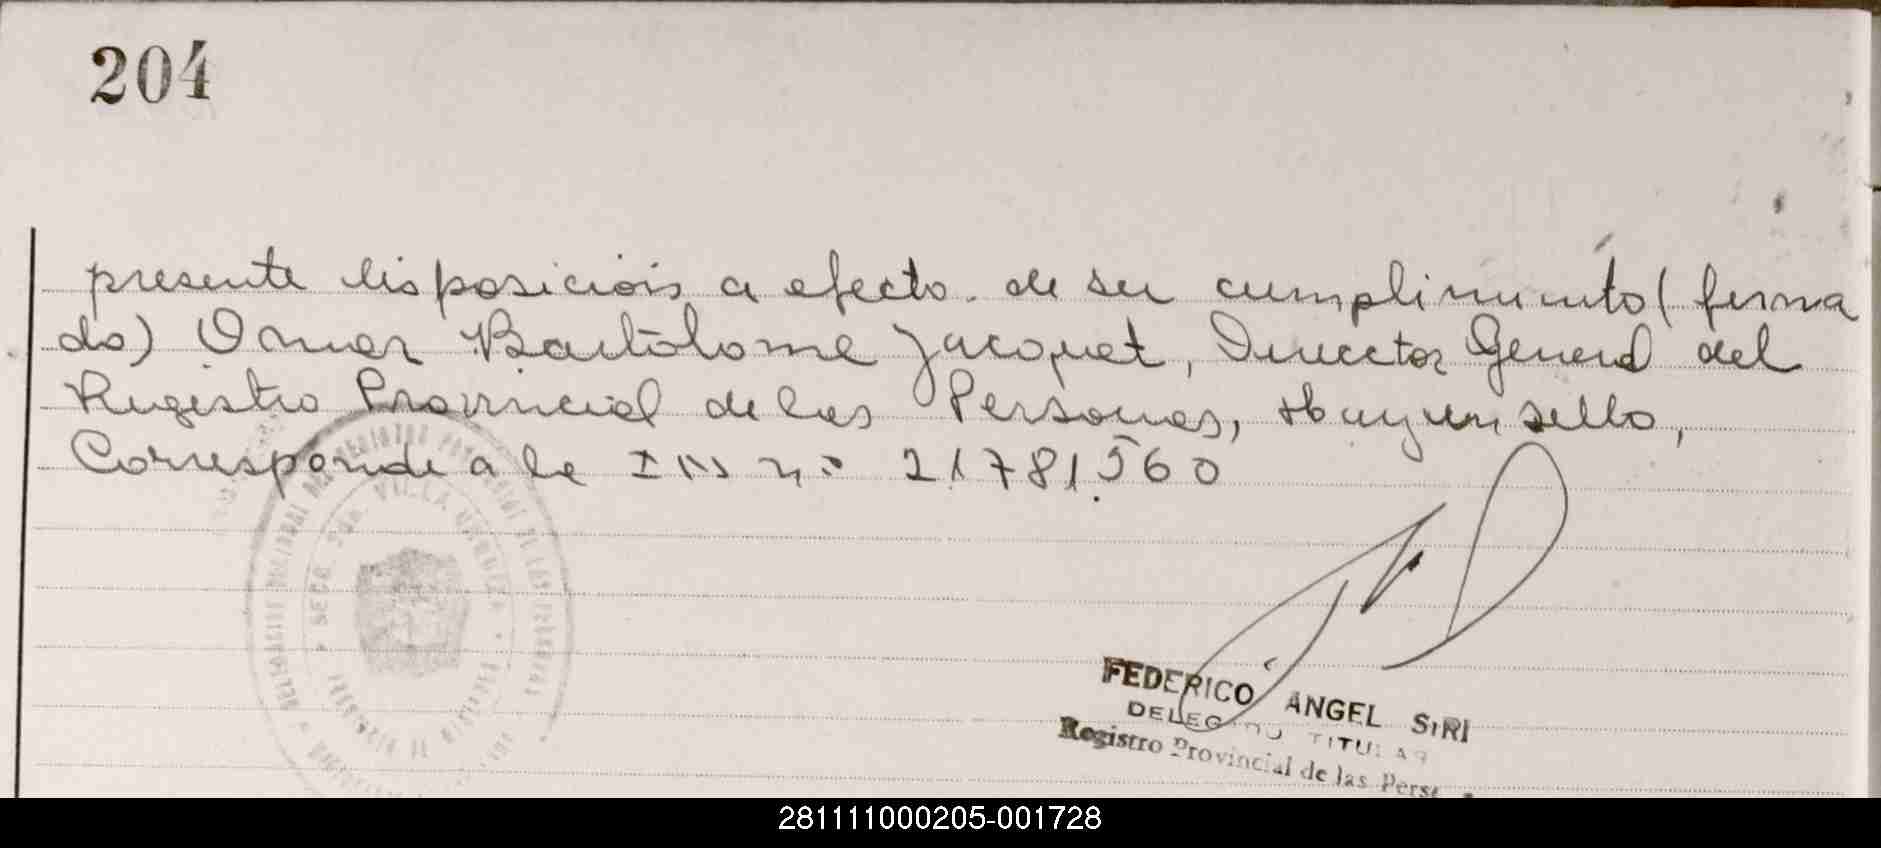 204
presente disposición a efecto de su cumplimiento (firma
do) Omar Bartolome Jacquet, Director General del
Registro Provincial de las Personas, Hay un sello,
Corresponde a la I N nº 21781560
FEDERICO ANGEL SIRI
DELEGADO TITULAR
Registro Provincial de las Pers
281111000205-001728